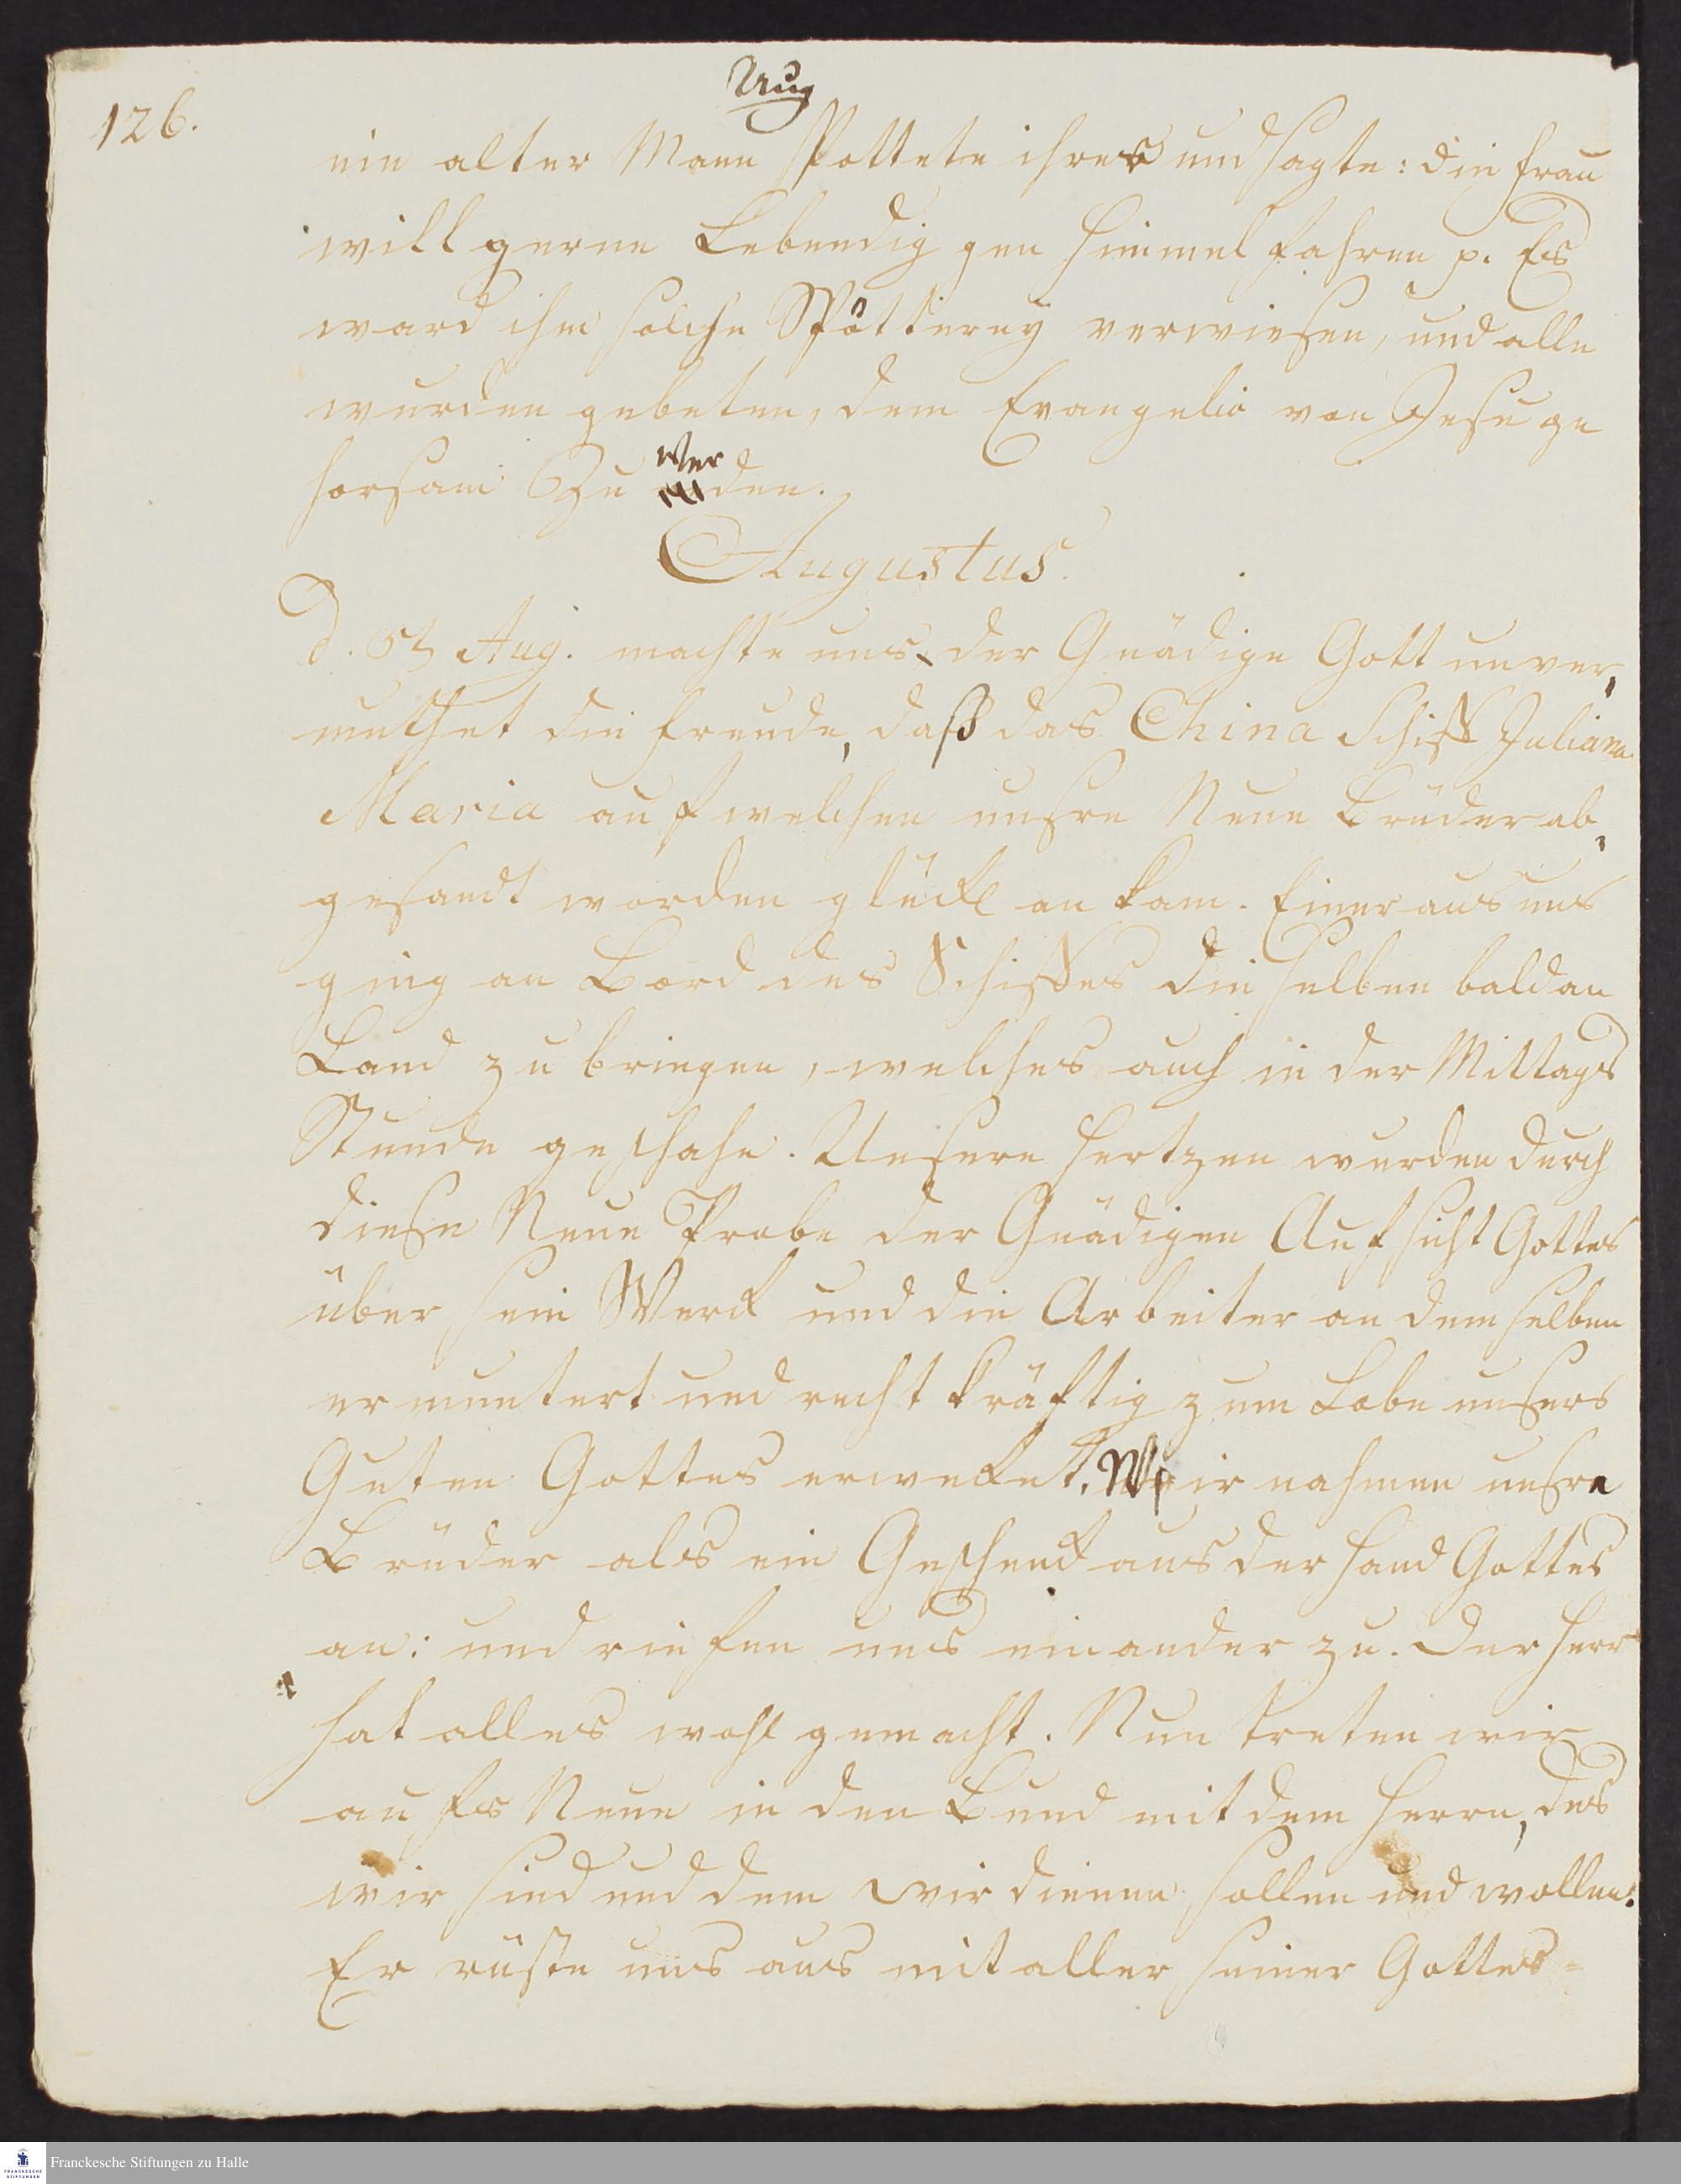 Aug
126.
ein alter Mann Spottete ihres und sagte: die Frau
will gerne Lebendig gen Himmel fahren p. Es
ward ihm solche Spötterey verwiesen, und alle
wurden gebeten, dem Evangelio von Jesu ge
horsam Zu werden.
Augustus.
d. Aug. machte uns der Gnädige Gott unver,
muthet die Freude, daß das China Schiff Juliana
Maria auf welchen unsre Neue Brüder ab,
gesandt worden glückl an kam. Einer aus uns
ging an Bord des Schiffes die selben bald an
Land zu bringen, welches auch in der Mittags
Stunde geschahe. Unsere Hertzen wurden durch
diese Neue Probe der Gnädigen Auf sicht Gottes
über sein Werck und die Arbeiter an dem selben
er muntert und recht kräftig zum Lobe unsers
Guten Gottes erwecket. Wir nahmen unsre
Brüder als ein Geschenck aus der Hand Gottes
an: und riefen uns einander zu. Der Herr
hat alles wohl gemacht. Nun treten wir
aufs Neue in den Bund mit dem Herrn, des
wir sind und dem wir dienen sollen und wollen.
Er rüste uns aus mit aller seiner Gottes=
Franckesche Stiftungen zu Halle